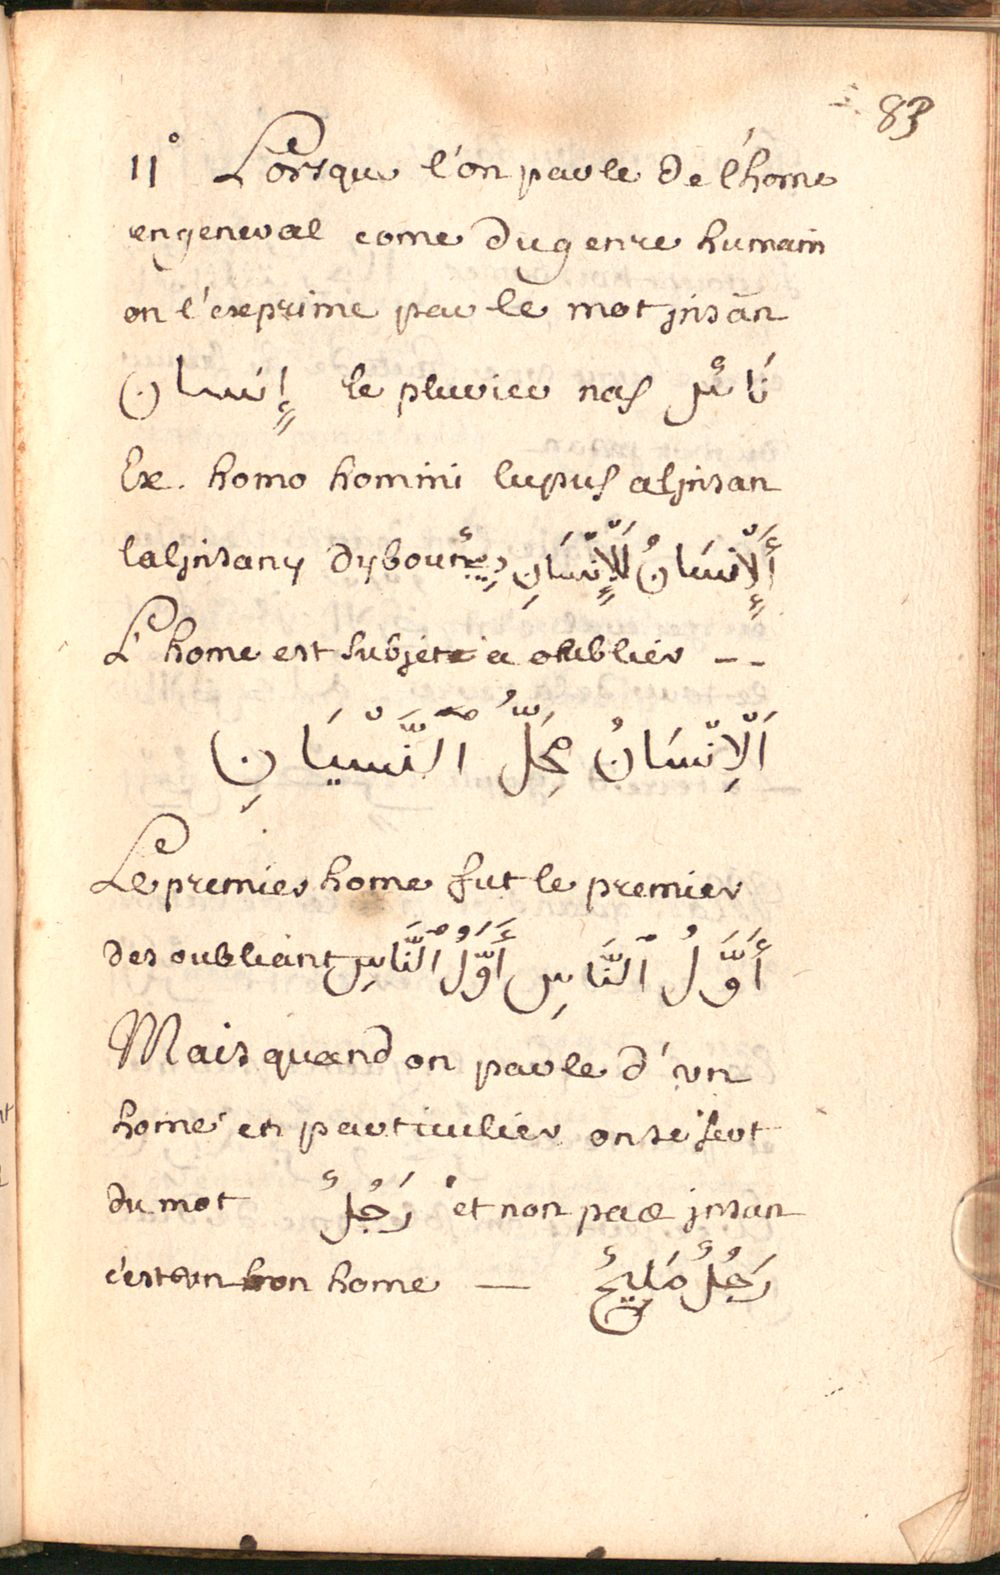 83
11° Lorsque l'on parle de l'home
en general come du genre humain
on l'exprime par le mot jnsān
إِنسان le plurier nas نَاسٌ
Ex. homo homini lupus aljnsan
laljnsany dyboun أَلْإِنْسَانُ لَلْإِنْسَانِ دِيبٌ
L'home est subjet a oublier --
اَلْاِنْسَانُ مِحَلُّ ٱلنَّسْيَانِ
Le premier home fut le premier
des oubliant أَوَّلُ ٱلنَّاسِ أَوَّلُ ٱلنَّاسِ
Mais quand on parle d'vn
home en particulier on se sert
du mot رَجُلٌ et non pas jnsan
c'est vn bon home — رَجُلٌ مَلِيحٌ